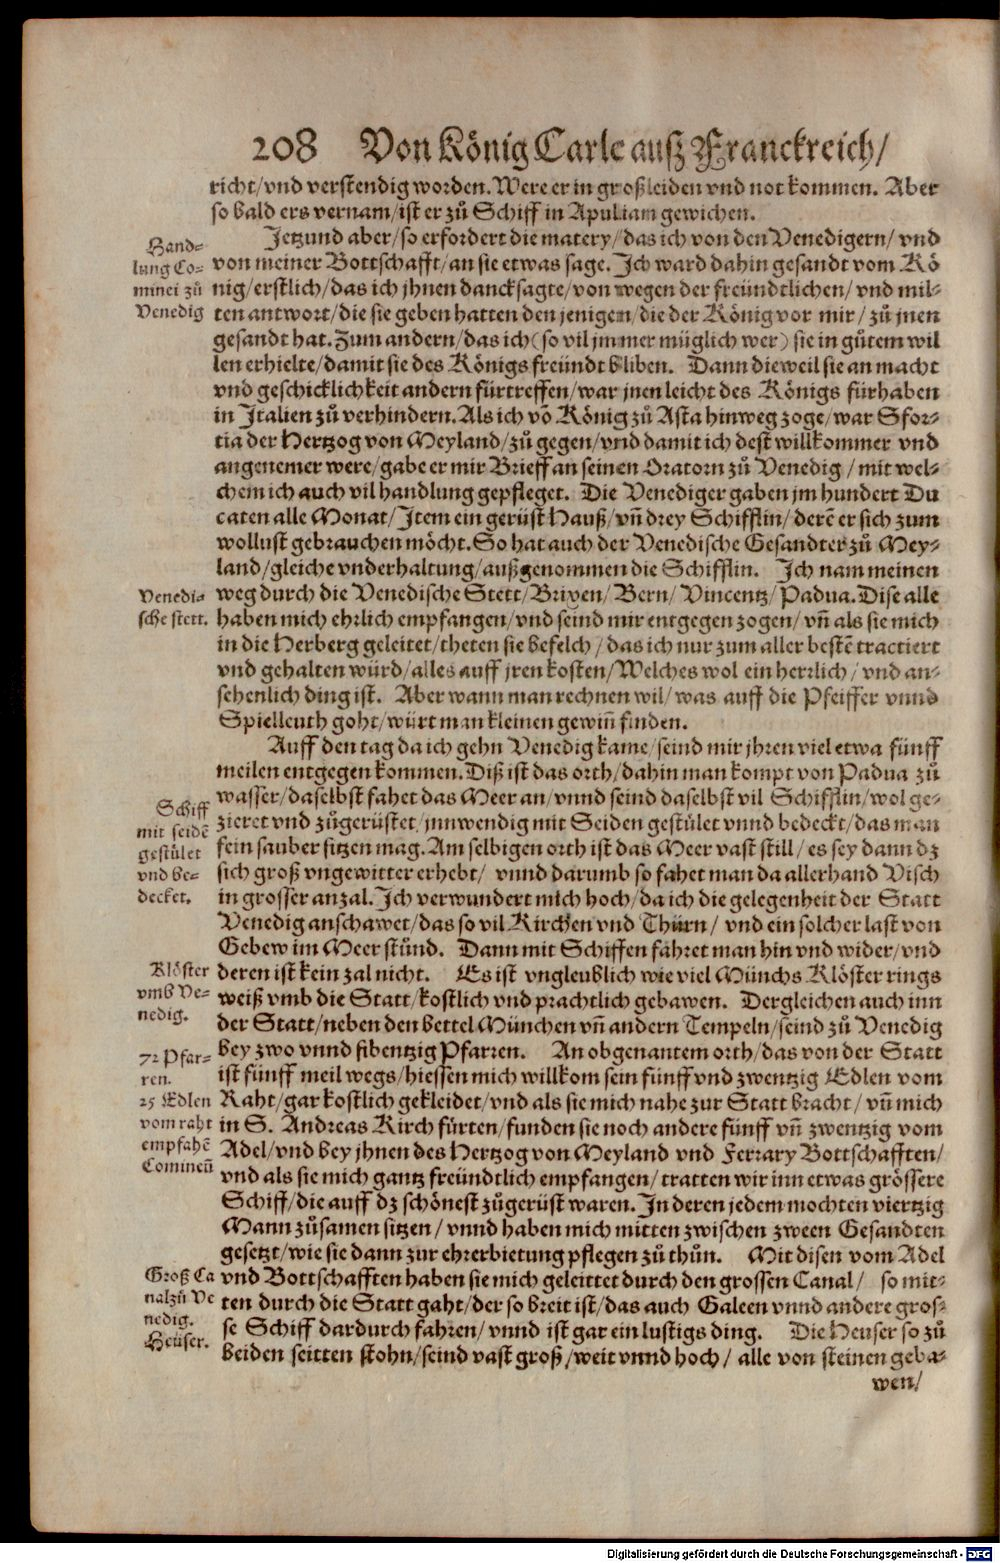 208 Von König Carle auß Franckreich/
richt/vnd verstendig worden. Were er in groß leiden vnd not kommen. Aber
so bald ers vernam/ist er zů Schiff in Apuliam gewichen.
Handlung Co-
minei zů
Venedig
Jetzund aber/so erfordert die matery/das ich von den Venedigern/vnd
von meiner Bottschafft/an sie etwas sage. Ich ward dahin gesandt vom Kö
nig/erstlich/das ich jhnen dancksagte/von wegen der freündtlichen/vnd mil-
ten antwort/die sie geben hatten den jenigen/die der König vor mir/zů jnen
gesandt hat. Zum andern/das ich (so vil jmmer müglich wer) sie in gůtem wil
len erhielte/damit sie des Königs freündt bliben. Dann dieweil sie an macht
vnd geschicklichkeit andern fürtreffen/war jnen leicht des Königs fürhaben
in Italien zů verhindern. Als ich võ König zů Asta hinweg zoge/war Sfor-
tia der Hertzog von Meyland/zů gegen/vnd damit ich dest willkommer vnd
angenemer were/gabe er mir Brieff an seinen Oratorn zů Venedig/mit wel-
chem ich auch vil handlung gepfleget. Die Venediger gaben jm hundert Du
caten alle Monat/Item ein gerüst Hauß/vñ drey Schifflin/derẽ er sich zum
wollust gebrauchen möcht. So hat auch der Venedische Gesandter zů Mey-
land/gleiche vnderhaltung/außgenommen die Schifflin. Ich nam meinen
Venedi-
sche stett.
weg durch die Venedische Stett/Brixen/Bern/Vincentz/Padua. Dise alle
haben mich ehrlich empfangen/vnd seind mir entgegen zogen/vñ als sie mich
in die Herberg geleitet/theten sie befelch/das ich nur zum aller bestẽ tractiert
vnd gehalten würd/alles auff jren kosten/Welches wol ein herrlich/vnd an-
sehenlich ding ist. Aber wann man rechnen wil/was auff die Pfeiffer vnnd
Spielleuth goht/würt man kleinen gewiñ finden.
Auff den tag da ich gehn Venedig kame/seind mir jhren viel etwa fünff
meilen entgegen kommen. Diß ist das orth/dahin man kompt von Padua zů
Schiff
mit seidẽ
gestůlet
vnd be-
decket.
wasser/daselbst fahet das Meer an/vnnd seind daselbst vil Schifflin/wol ge-
zieret vnd zůgerüstet/jnnwendig mit Seiden gestůlet vnnd bedeckt/das man
fein sauber sitzen mag. Am selbigen orth ist das Meer vast still/es sey dann dz
sich groß vngewitter erhebt/vnnd darumb so fahet man da allerhand Visch
in grosser anzal. Ich verwundert mich hoch/da ich die gelegenheit der Statt
Venedig anschawet/das so vil Kirchen vnd Thürn/vnd ein solcher last von
Gebew im Meer stůnd. Dann mit Schiffen fahret man hin vnd wider/vnd
Klöster
vmb Ve-
nedig.
deren ist kein zal nicht. Es ist vngleublich wie viel Münchs Klöster rings
weiß vmb die Statt/kostlich vnd prachtlich gebawen. Dergleichen auch inn
der Statt/neben den bettel München vñ andern Tempeln/seind zů Venedig
72 Pfar-
ren.
bey zwo vnnd sibentzig Pfarren. An obgenantem orth/das von der Statt
ist fünff meil wegs/hiessen mich willkom sein fünff vnd zwentzig Edlen vom
25 Edlen
vom raht
empfahẽ
Comineũ
Raht/gar kostlich gekleidet/vnd als sie mich nahe zur Statt bracht/vñ mich
in S. Andreas Kirch fürten/funden sie noch andere fünff vñ zwentzig vom
Adel/vnd bey jhnen des Hertzog von Meyland vnd Ferrary Bottschafften/
vnd als sie mich gantz freündtlich empfangen/tratten wir inn etwas grössere
Schiff/die auff dz schönest zůgerüst waren. In deren jedem mochten viertzig
Mann zůsamen sitzen/vnnd haben mich mitten zwischen zween Gesandten
gesetzt/wie sie dann zur ehrerbietung pflegen zů thůn. Mit disen vom Adel
Groß Ca
nal zů Ve
nedig.
Heüser.
vnd Bottschafften haben sie mich geleittet durch den grossen Canal/so mit-
ten durch die Statt gaht/der so breit ist/das auch Galeen vnnd andere gros-
se Schiff dardurch fahren/vnnd ist gar ein lustigs ding. Die Heuser so zů
beiden seitten stohn/seind vast groß/weit vnnd hoch/alle von steinen geba-
wen/
Digitalisierung gefördert durch die Deutsche Forschungsgemeinschaft - DFG